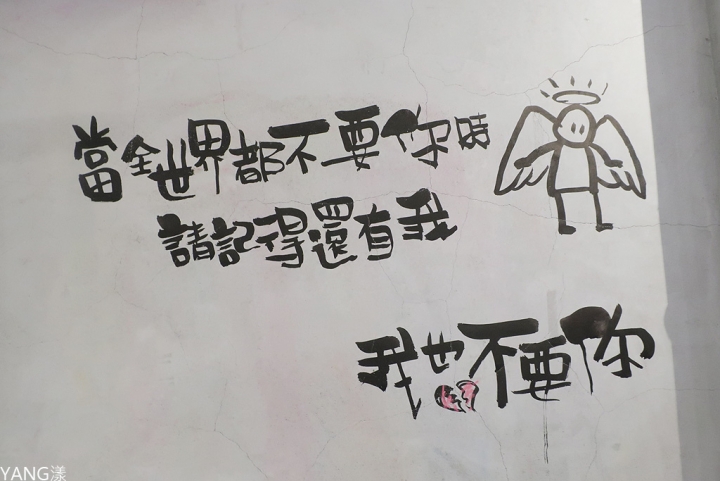 當全世界都不要你時
請記得還有我
我也不要你
YANG漾